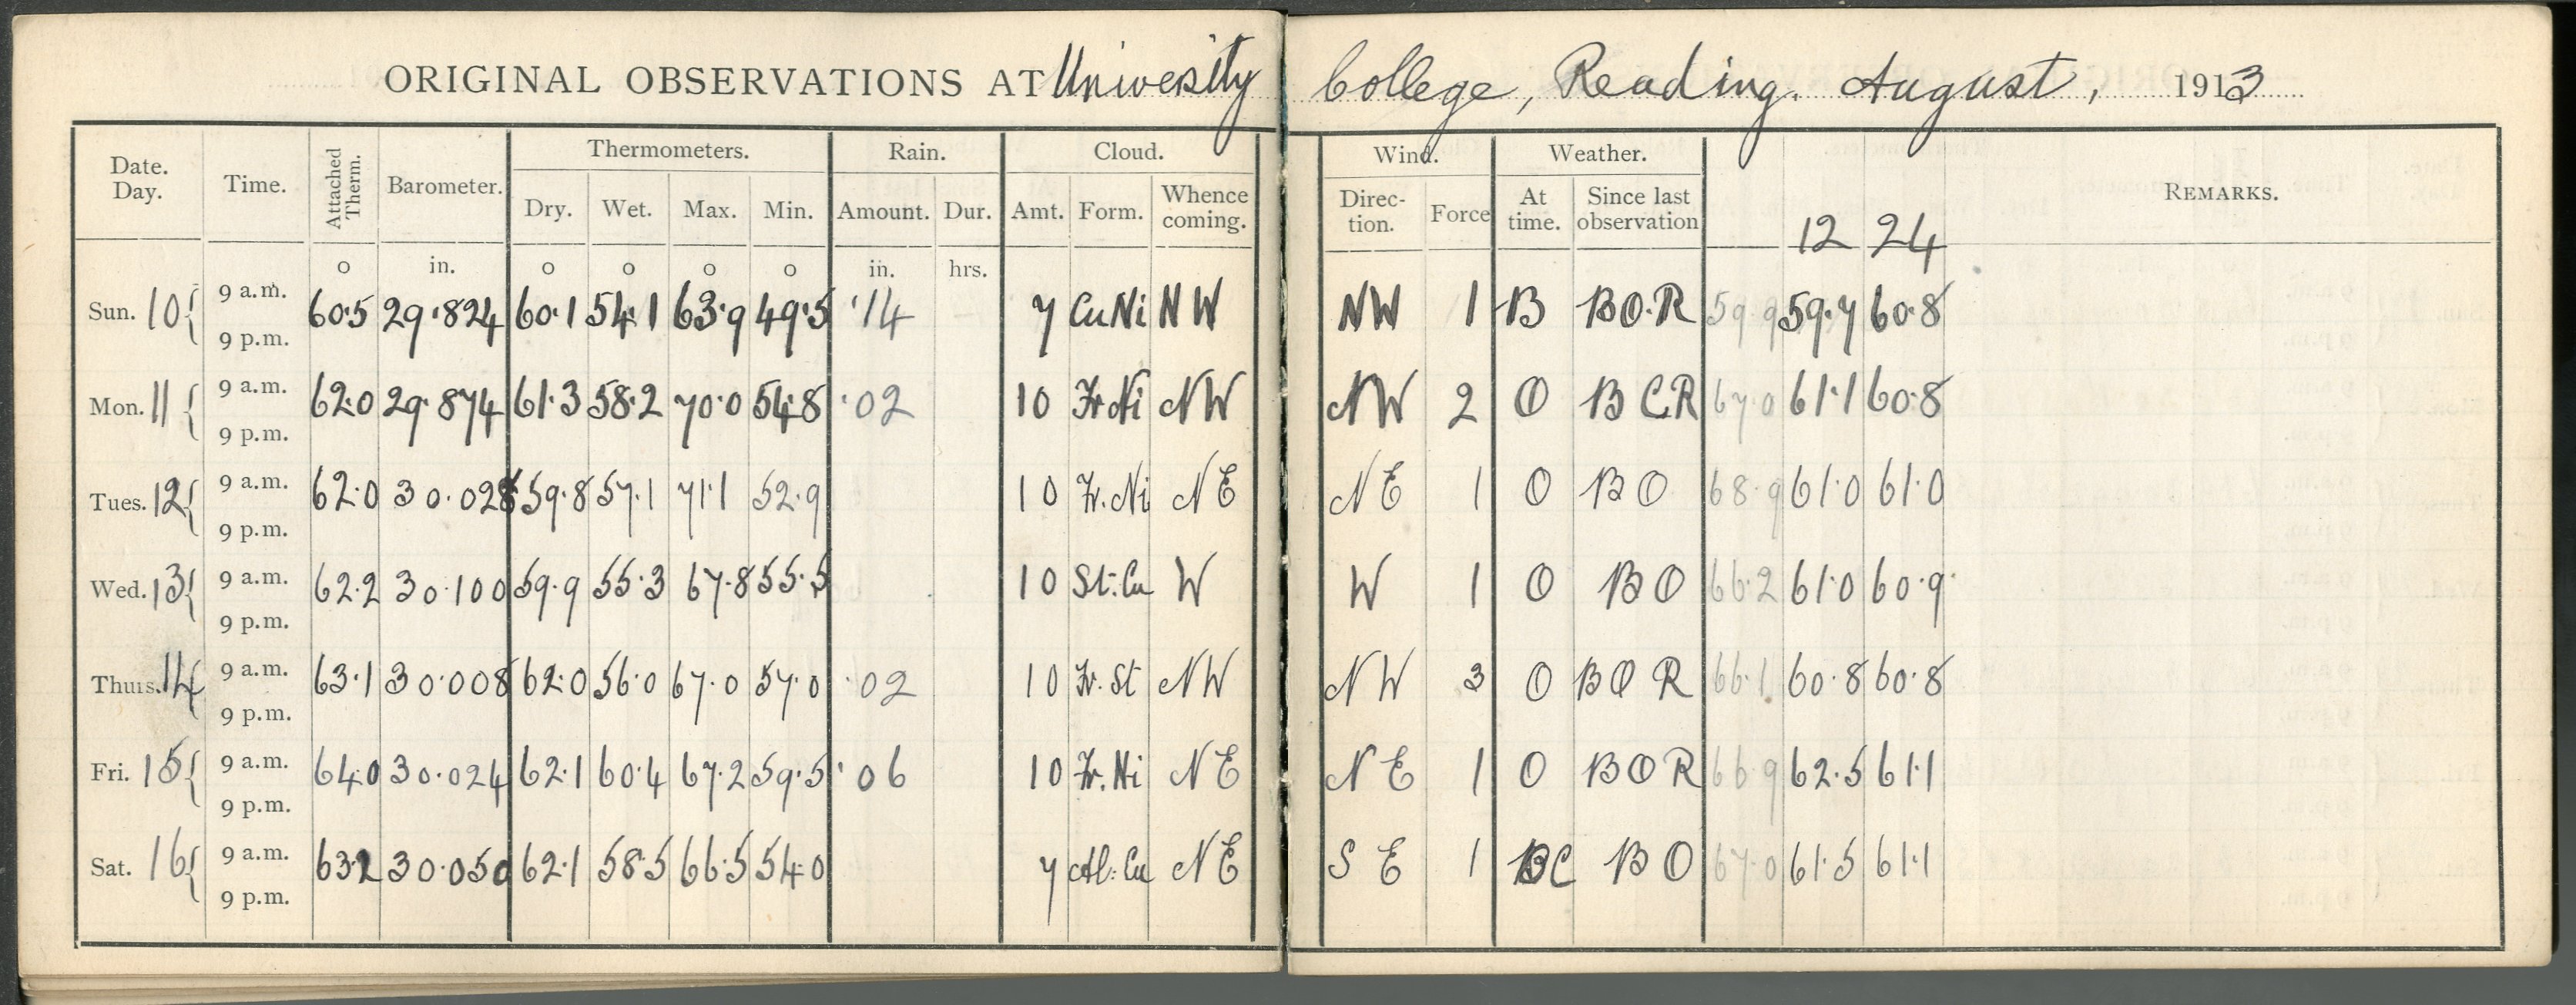 ORIGINAL OBSERVATIONS AT University College, Reading. August, 1913
Date. Day. Time. Attached Therm. Barometer. Thermometers. Rain. Cloud. Wind. Weather. REMARKS.
Dry. Wet. Max. Min. Amount. Dur. Amt. Form. Whence coming. Direc- tion. Force At time. Since last observation 12 24
o in. o o o o in. hrs.
Sun. 10 { 9 a.m. 60.5 29.824 60.1 54.1 63.9 49.5 .14 7 Cu Ni NW NW 1 B BO.R 59.9 59.7 60.8
9 p.m.
Mon. 11 { 9 a.m. 62.0 29.874 61.3 58.2 70.0 54.8 .02 10 Fr Ni NW NW 2 O B C R 67.0 61.1 60.8
9 p.m.
Tues. 12 { 9 a.m. 62.0 30.028 59.8 57.1 71.1 52.9 10 Fr. Ni NE NE 1 O BO 68.9 61.0 61.0
9 p.m.
Wed. 13 { 9 a.m. 62.2 30.100 59.9 55.3 67.8 55.5 10 St:Cu W W 1 O BO 66.2 61.0 60.9
9 p.m.
Thurs. 14 { 9 a.m. 63.1 30.008 62.0 56.0 67.0 57.0 .02 10 Fr. St NW NW 3 O BO R 66.1 60.8 60.8
9 p.m.
Fri. 15 { 9 a.m. 64.0 30.024 62.1 60.4 67.2 59.5 .06 10 Fr. Ni NE NE 1 O BO R 66.9 62.5 61.1
9 p.m.
Sat. 16 { 9 a.m. 63.2 30.050 62.1 58.5 66.5 54.0 7 Al:Cu NE SE 1 BC BO 67.0 61.5 61.1
9 p.m.